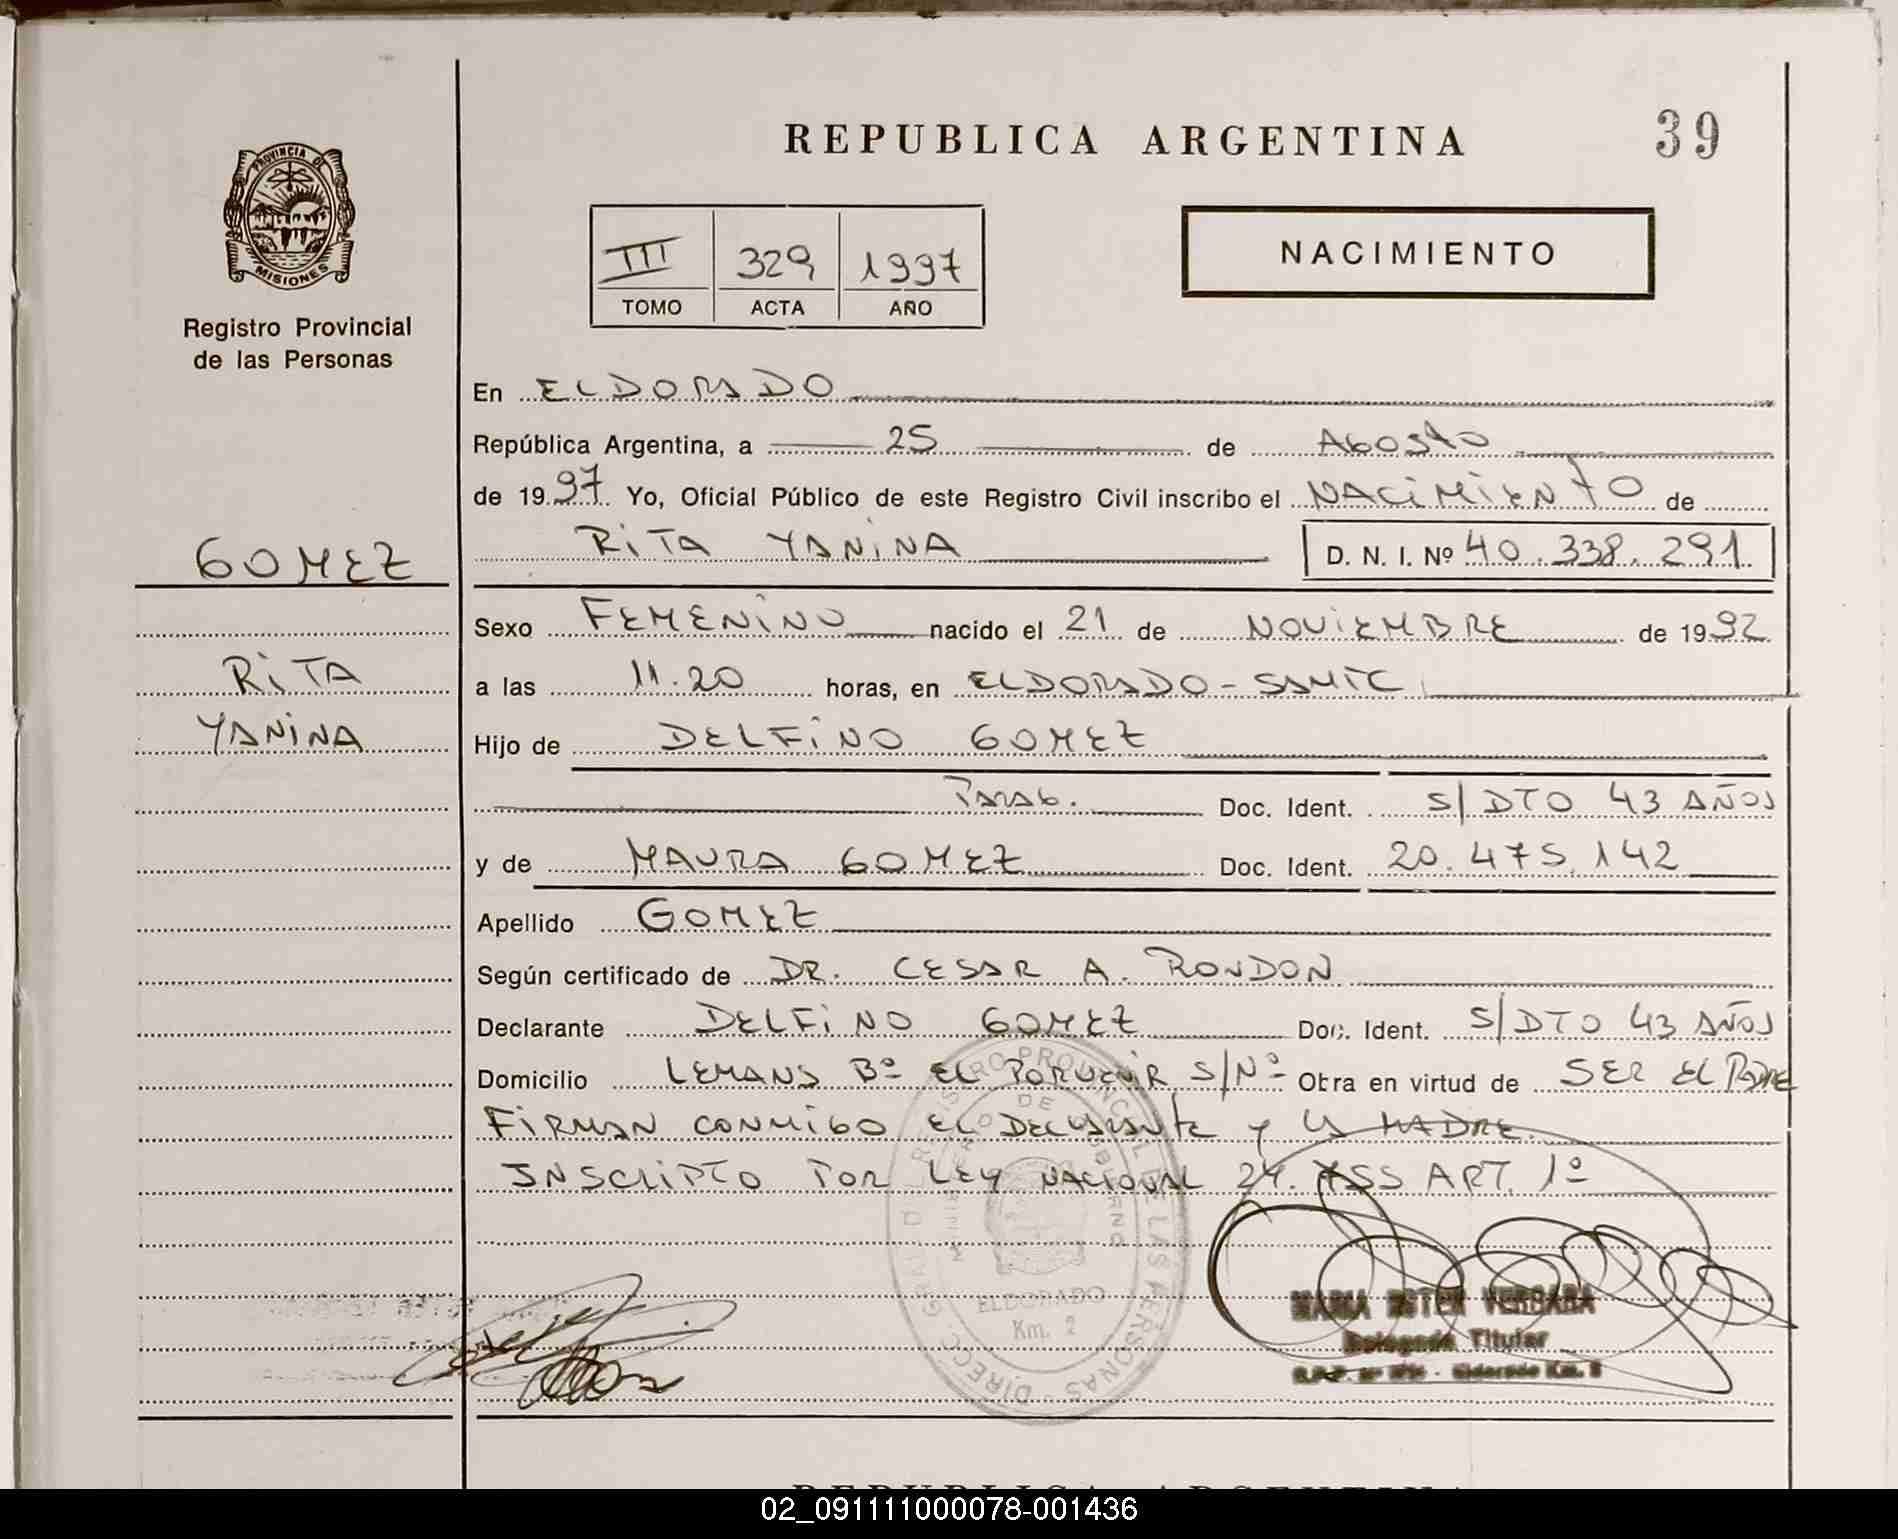 REPUBLICA ARGENTINA
39
PROVINCIA DE
MISIONES
Registro Provincial
de las Personas
III 329 1997
TOMO ACTA AÑO
NACIMIENTO
En ELDORADO
República Argentina, a 25 de Agosto
de 1997 Yo, Oficial Público de este Registro Civil inscribo el NACIMIENTO de
RITA YANINA D. N. I. Nº 40.338.291
GOMEZ
RITA
YANINA
Sexo FEMENINO nacido el 21 de NOVIEMBRE de 1992
a las 11.20 horas, en ELDORADO - SAMIC
Hijo de DELFINO GOMEZ
PARAG. Doc. Ident. S/DTO 43 AÑOS
y de MAURA GOMEZ Doc. Ident. 20.475.142
Apellido GOMEZ
Según certificado de DR. CESAR A. RONDON
Declarante DELFINO GOMEZ Doc. Ident. S/DTO 43 AÑOS
Domicilio LEMANS Bº EL PORVENIR S/Nº Otra en virtud de SER EL PADRE
FIRMAN CONMIGO EL DECLARANTE Y LA MADRE.
INSCRIPTO POR LEY NACIONAL 24.755 ART. 1º
DIRECC. GRAL. DEL REGISTRO PROVINCIAL DE LAS PERSONAS
MINISTERIO DE GOBIERNO
ELDORADO
Km. 2
MARIA ESTER VERGARA
Delegada Titular
Eldorado Km. 2
REPUBLICA ARGENTINA
02_091111000078-001436